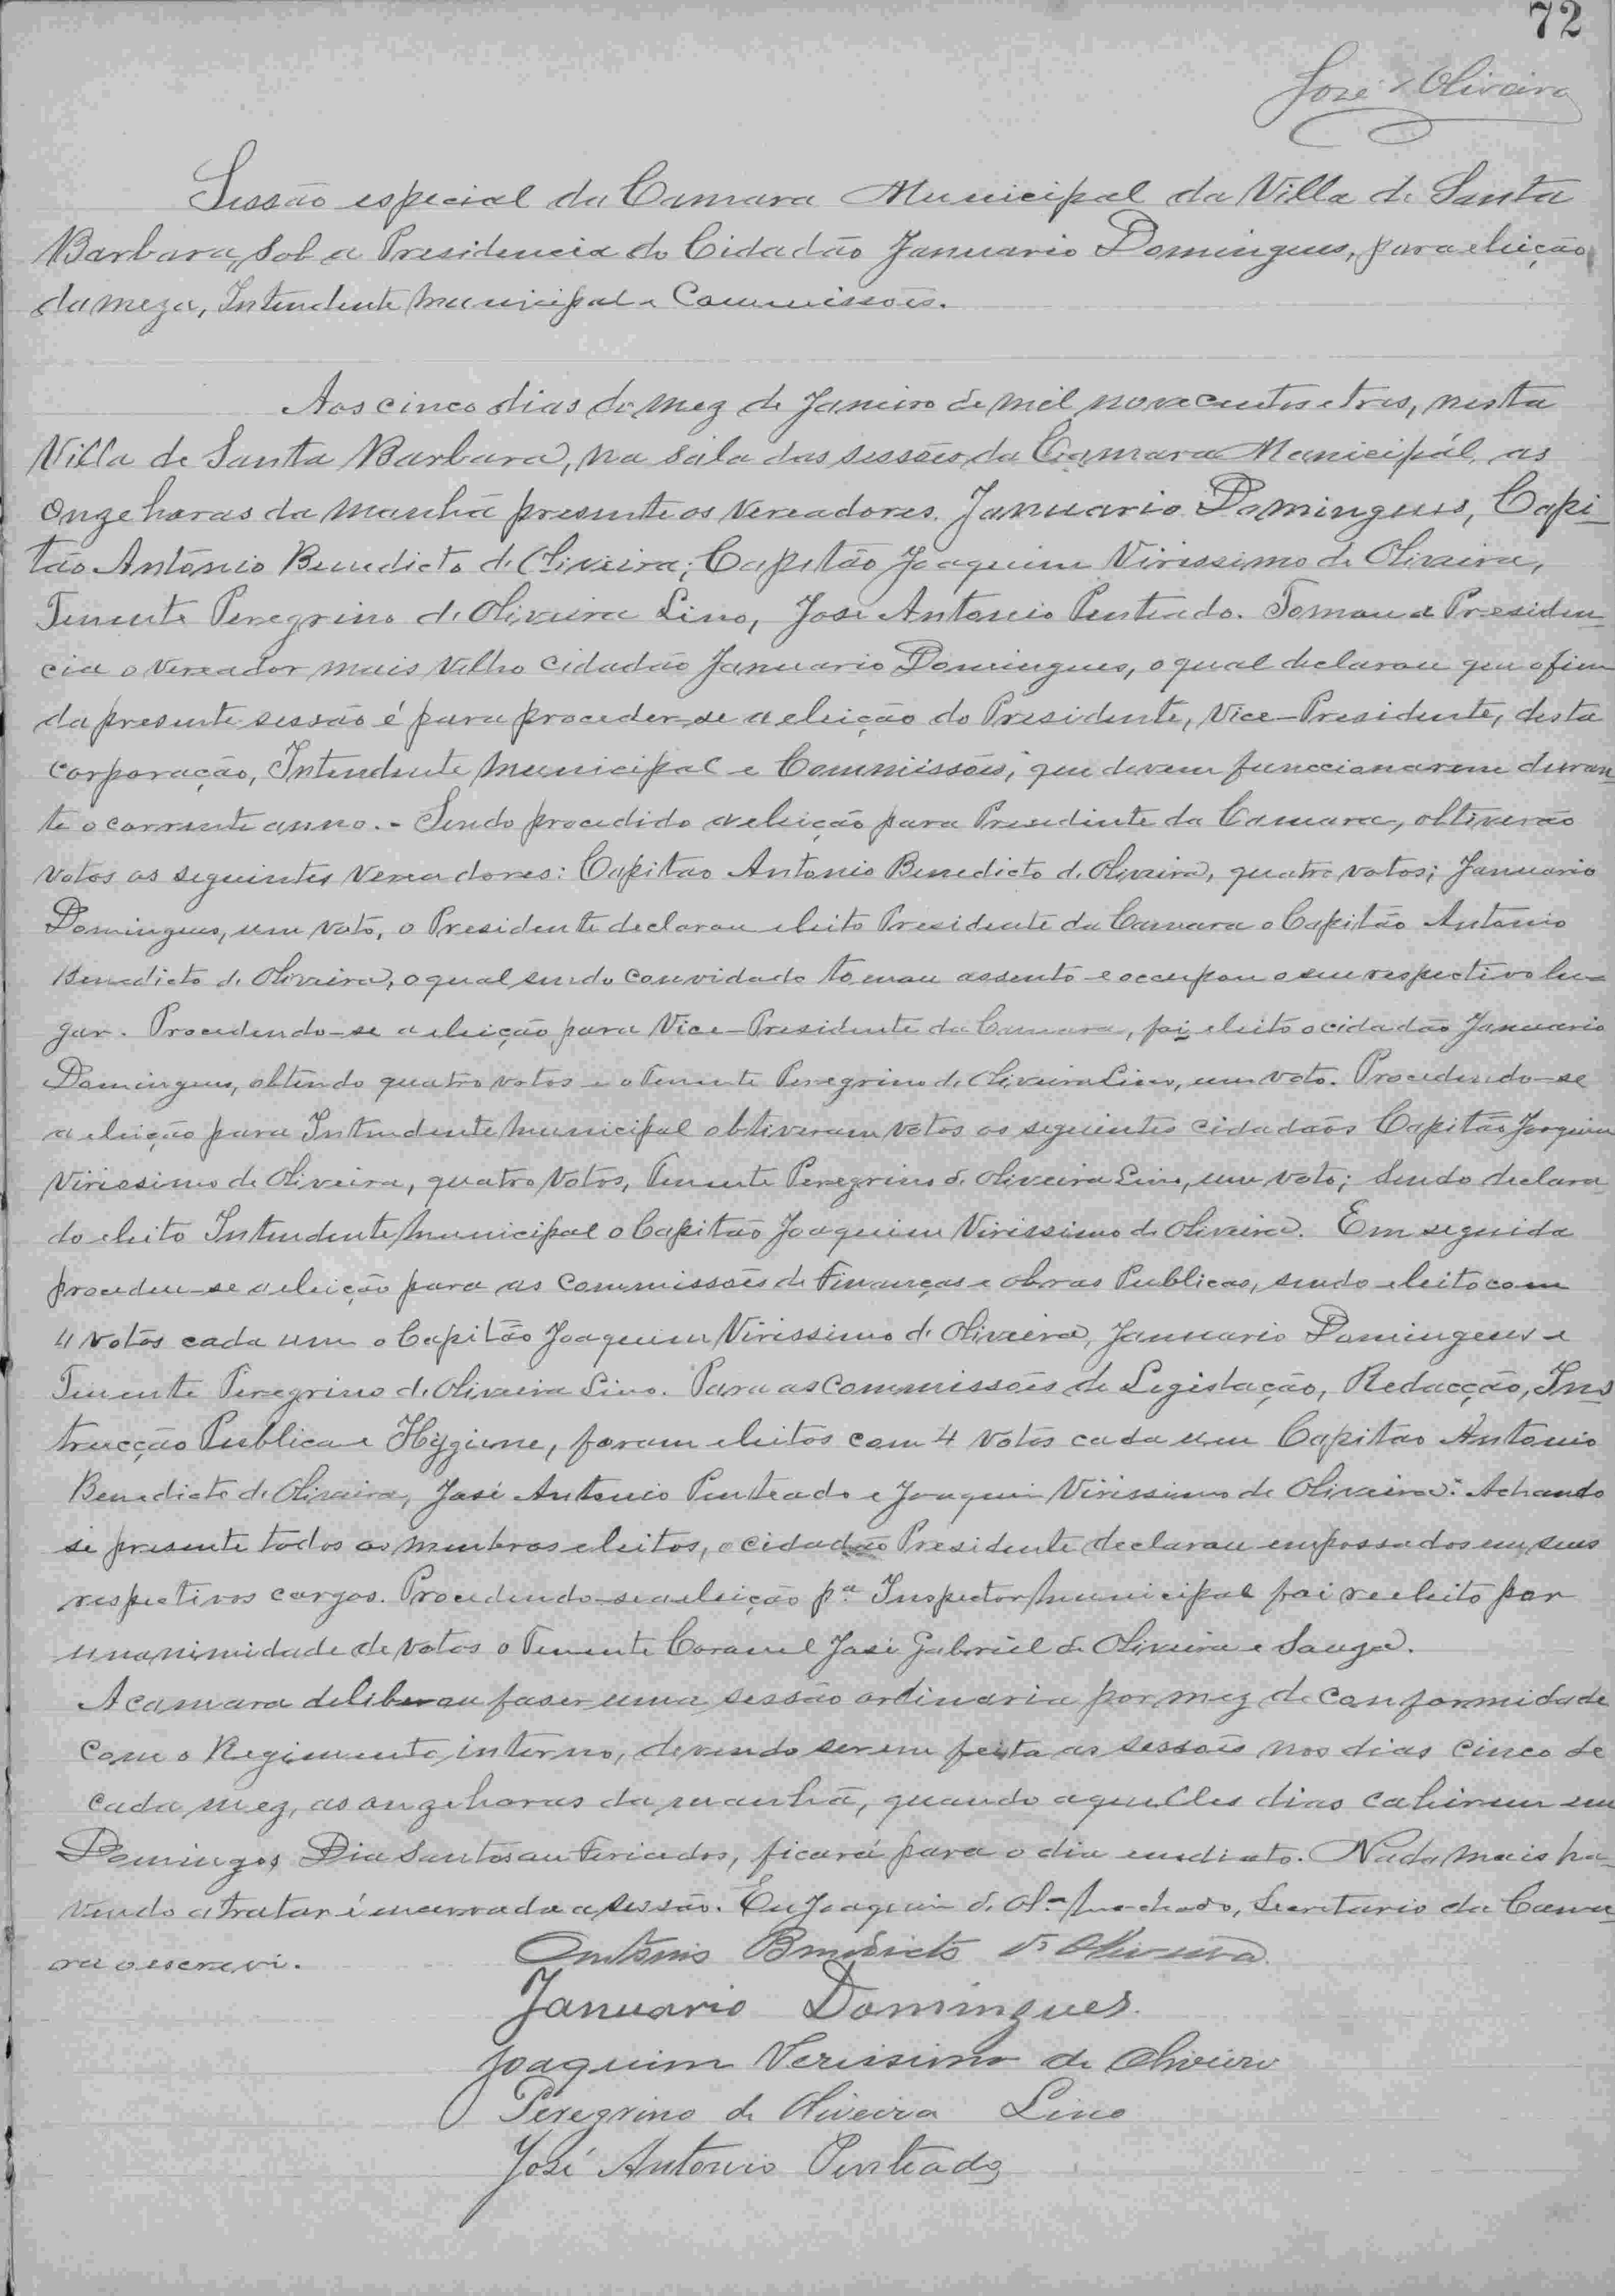 72
José d' Oliveira
Sessão especial da Camara Municipal da Villa de Santa
Barbara, Sob a Presidencia do Cidadão Januario Domingues, para eleição
da meza, Intendente Municipal e Commissões.
Aos cinco dias do mez de Janeiro de mil novecentos e tres, nesta
Villa de Santa Barbara, na sala das sessões da Camara Municipál, as
Onze horas da manhã presente os Vereadores. Januario Domingues, Capi-
tão Antonio Benedicto de Oliveira; Capitão Joaquim Virissimo de Oliveira,
Tenente Peregrino de Oliveira Lino, José Antonio Penteado. Tomou a Presiden-
cia o Vereador mais velho cidadão Januario Domingues, o qual declarou que o fim
da presente sessão é para proceder-se a eleição do Presidente, Vice-Presidente, desta
corporação, Intendente Municipal e Commissões, que devem funccionarem duran-
te o corrente anno. - Sendo procedido a eleição para Presidente da Camara, obtiverão
votos os seguintes Vereadores: Capitão Antonio Benedicto de Oliveira, quatro votos; Januario
Domingues, um voto, o Presidente declarou eleito Presidente da Camara o Capitão Antonio
Benedicto de Oliveira, o qual sendo convidado tomou assento e occupou o seu respectivo lu-
gar. Procedendo-se a eleição para Vice-Presidente da Camara, foi eleito o cidadão Januario
Domingues, obtendo quatro votos e o Tenente Peregrino de Oliveira Lino, um voto. Procedendo-se
a eleição para Intendente Municipal obtiveram votos os seguintes cidadãos Capitão Joaquim
Virissimo de Oliveira, quatro votos, Tenente Peregrino de Oliveira Lino, um voto; Sendo declara-
do eleito Intendente Municipal o Capitão Joaquim Virissimo de Oliveira. Em seguida
procedeu-se a eleição para as Commissões de Finanças e obras Publicas, sendo eleito com
4 votos cada um o Capitão Joaquim Virissimo de Oliveira, Januario Domingues e
Tenente Peregrino de Oliveira Lino. Para as Commissões de Legislação, Redacção, Ins-
trucção Publica e Hygiene, foram eleitos com 4 votos cada um Capitão Antonio
Benedicto de Oliveira, José Antonio Penteado e Joaquim Virissimo de Oliveira. Achando
se presente todos os membros eleitos, o cidadão Presidente declarou empossados em seus
respectivos cargos. Procedendo-se a eleição pª Inspector Municipal foi reeleito por
unanimidade de votos o Tenente Coronel José Gabriel de Oliveira e Souza.
A camara deliberou faser uma sessão ordinaria por mez de conformidade
com o Regimento interno, devendo serem feita as sessões nos dias cinco de
cada mez, as onze horas da manhã, quando aquelles dias cahirem em
Domingos, Dia Santos ou Feriados, ficará para o dia emediato. Nada mais ha-
vendo a tratar é encerrada a sessão. Eu Joaquim de Olª Machado, Secretario da Cama-
ra o escrevi.
Antonio Benedicto de Oliveira.
Januario Domingues.
Joaquim Verissimo de Oliveira
Peregrino de Oliveira Lino
José Antonio Penteado